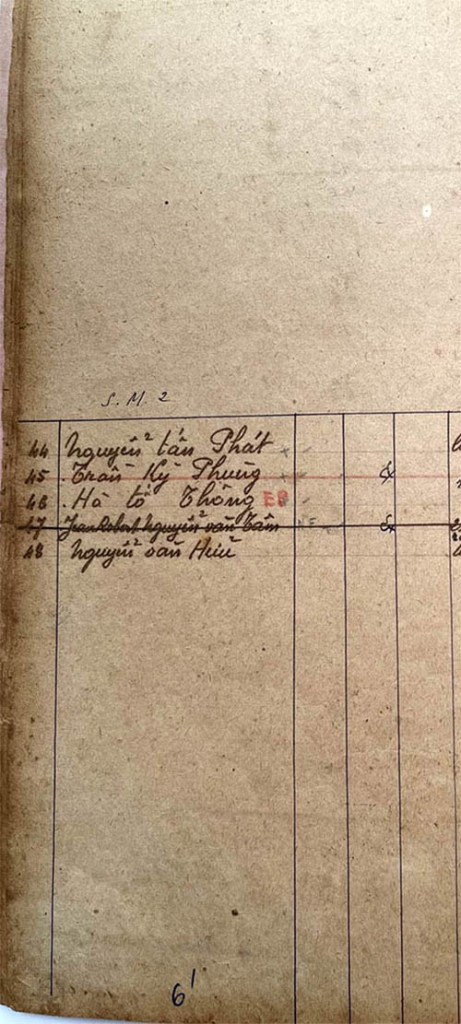 S. M. 2
44 Nguyễn tấn Phát
45 Trần Kỳ Phùng &
46 Hồ tô Thông EB
47 Jean Robert Nguyễn văn Tâm NF &
48 Nguyễn văn Hiếu
6'